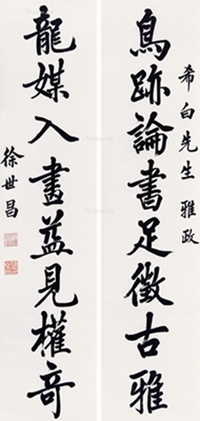 希白先生雅政
鳥跡論書足徵古雅
龍媒入畫益見權奇
徐世昌